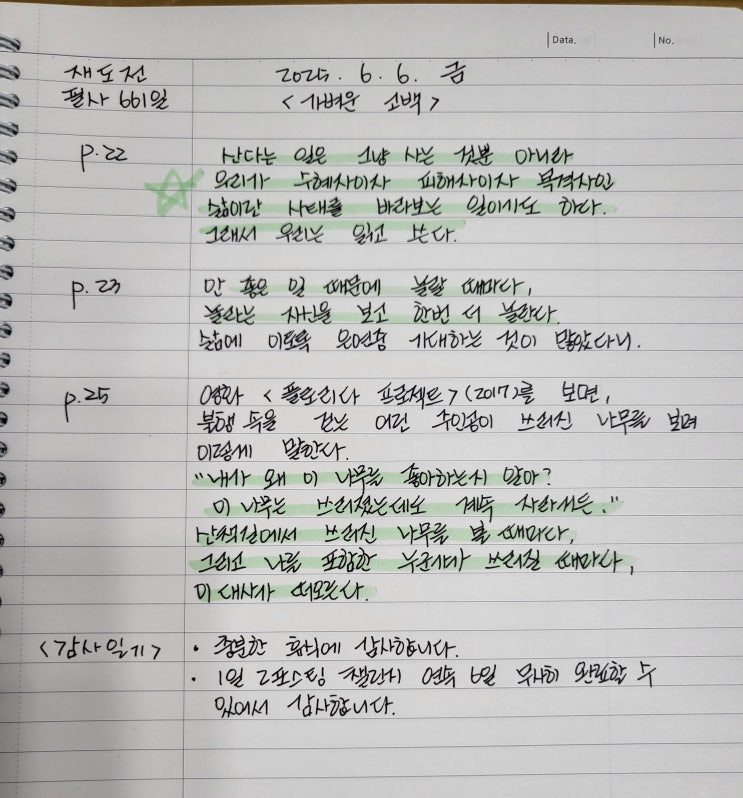 Data. No.
재도전 2025. 6. 6. 금
필사 661일 <가벼운 고백>
p.22 산다는 일은 그냥 사는 것뿐 아니라
우리가 수혜자이자 피해자이자 목격자인
삶이란 사태를 바라보는 일이기도 하다.
그래서 우리는 읽고 쓴다.
p.23 안 좋은 일 때문에 놀랄 때마다,
놀라는 자신을 보고 한번 더 놀란다.
삶에 이토록 은연중 기대하는 것이 많았다니.
p.25 영화 <플로리다 프로젝트>(2017)를 보면,
불행 속을 걷는 어린 주인공이 쓰러진 나무를 보며
이렇게 말한다.
"내가 왜 이 나무를 좋아하는지 알아?
이 나무는 쓰러졌는데도 계속 자라거든."
산책길에서 쓰러진 나무를 볼 때마다,
그리고 나를 포함한 누군가가 쓰러질 때마다,
이 대사가 떠오른다.
<감사일기> · 충분한 휴식에 감사합니다.
· 1일 2포스팅 챌린지 연속 6일 무사히 완료할 수
있어서 감사합니다.